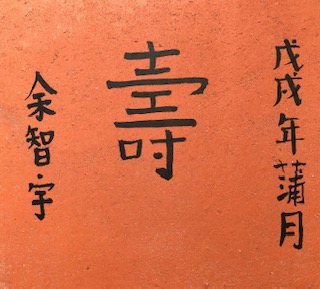 戊戌年蒲月
壽
余智宇